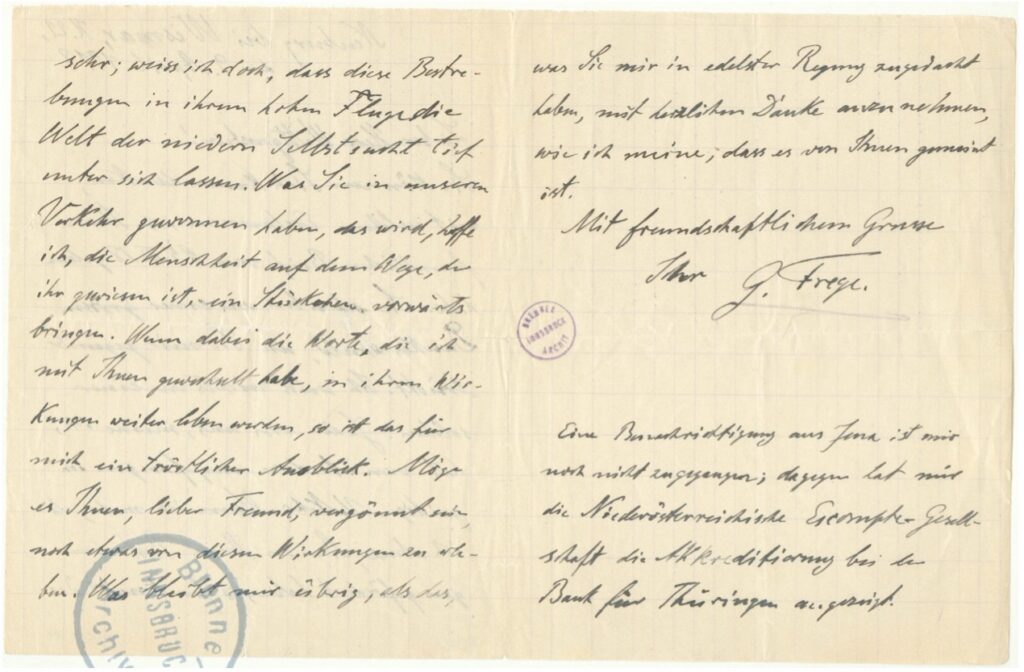 sehr; weiss ich doch, dass diese Bestre-
bungen in ihrem hohen Fluge die
Welt der niedern Selbstsucht tief
unter sich lassen. Was Sie in unserem
Verkehr gewonnen haben, das wird, hoffe
ich, die Menschheit auf dem Wege, der
ihr gewiesen ist, ein Stückchen vorwärts
bringen. Wenn dabei die Worte, die ich
mit Ihnen gewechselt habe, in ihren Wir-
kungen weiter leben werden, so ist das für
mich ein tröstlicher Ausblick. Möge
es Ihnen, lieber Freund, vergönnt sein,
noch etwas von diesen Wirkungen zu erle-
ben. Was bleibt mir übrig, als das,
Brenner-
INNSBRUCK
Archiv
was Sie mir in edelster Regung zugedacht
haben, mit herzlichem Danke anzunehmen,
wie ich meine, dass es von Ihnen gemeint
ist.
Mit freundschaftlichem Grusse
Ihr G. Frege.
BRENNER
INNSBRUCK
ARCHIV
Eine Benachrichtigung aus Jena ist mir
noch nicht zugegangen; dagegen hat mir
die Niederösterreichische Escompte-Gesell-
schaft die Akkreditierung bei der
Bank für Thüringen angezeigt.